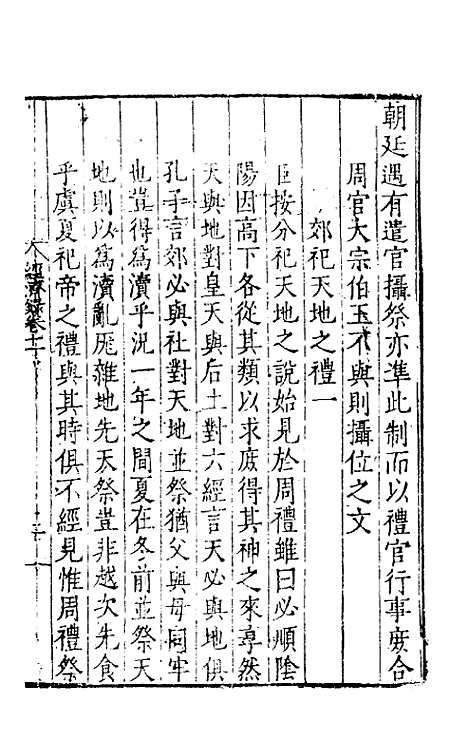 朝廷遇有遣官攝祭亦準此制而以禮官行事庶合
周官大宗伯王不與則攝位之文
郊祀天地之禮一
臣按分祀天地之說始見於周禮雖曰必順陰
陽因高下各從其類以求庶得其神之來享然
天與地對皇天與后土對六經言天必與地俱
孔子言郊必與社對天地並祭猶父與母同牢
也豈得爲瀆乎況一年之間夏在冬前並祭天
地則以爲瀆亂厖雜地先天祭豈非越次先食
乎虞夏祀帝之禮與其時俱不經見惟周禮祭
經濟錄卷十一